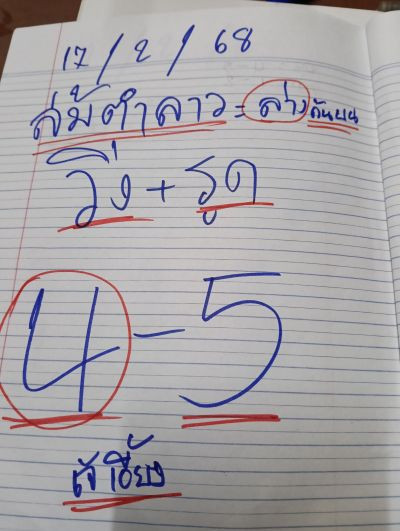 17/2/68
ส้มตำลาว = ล่าง กันบน
วิ่ง + รูด
4 - 5
เจ้เอี้ยง